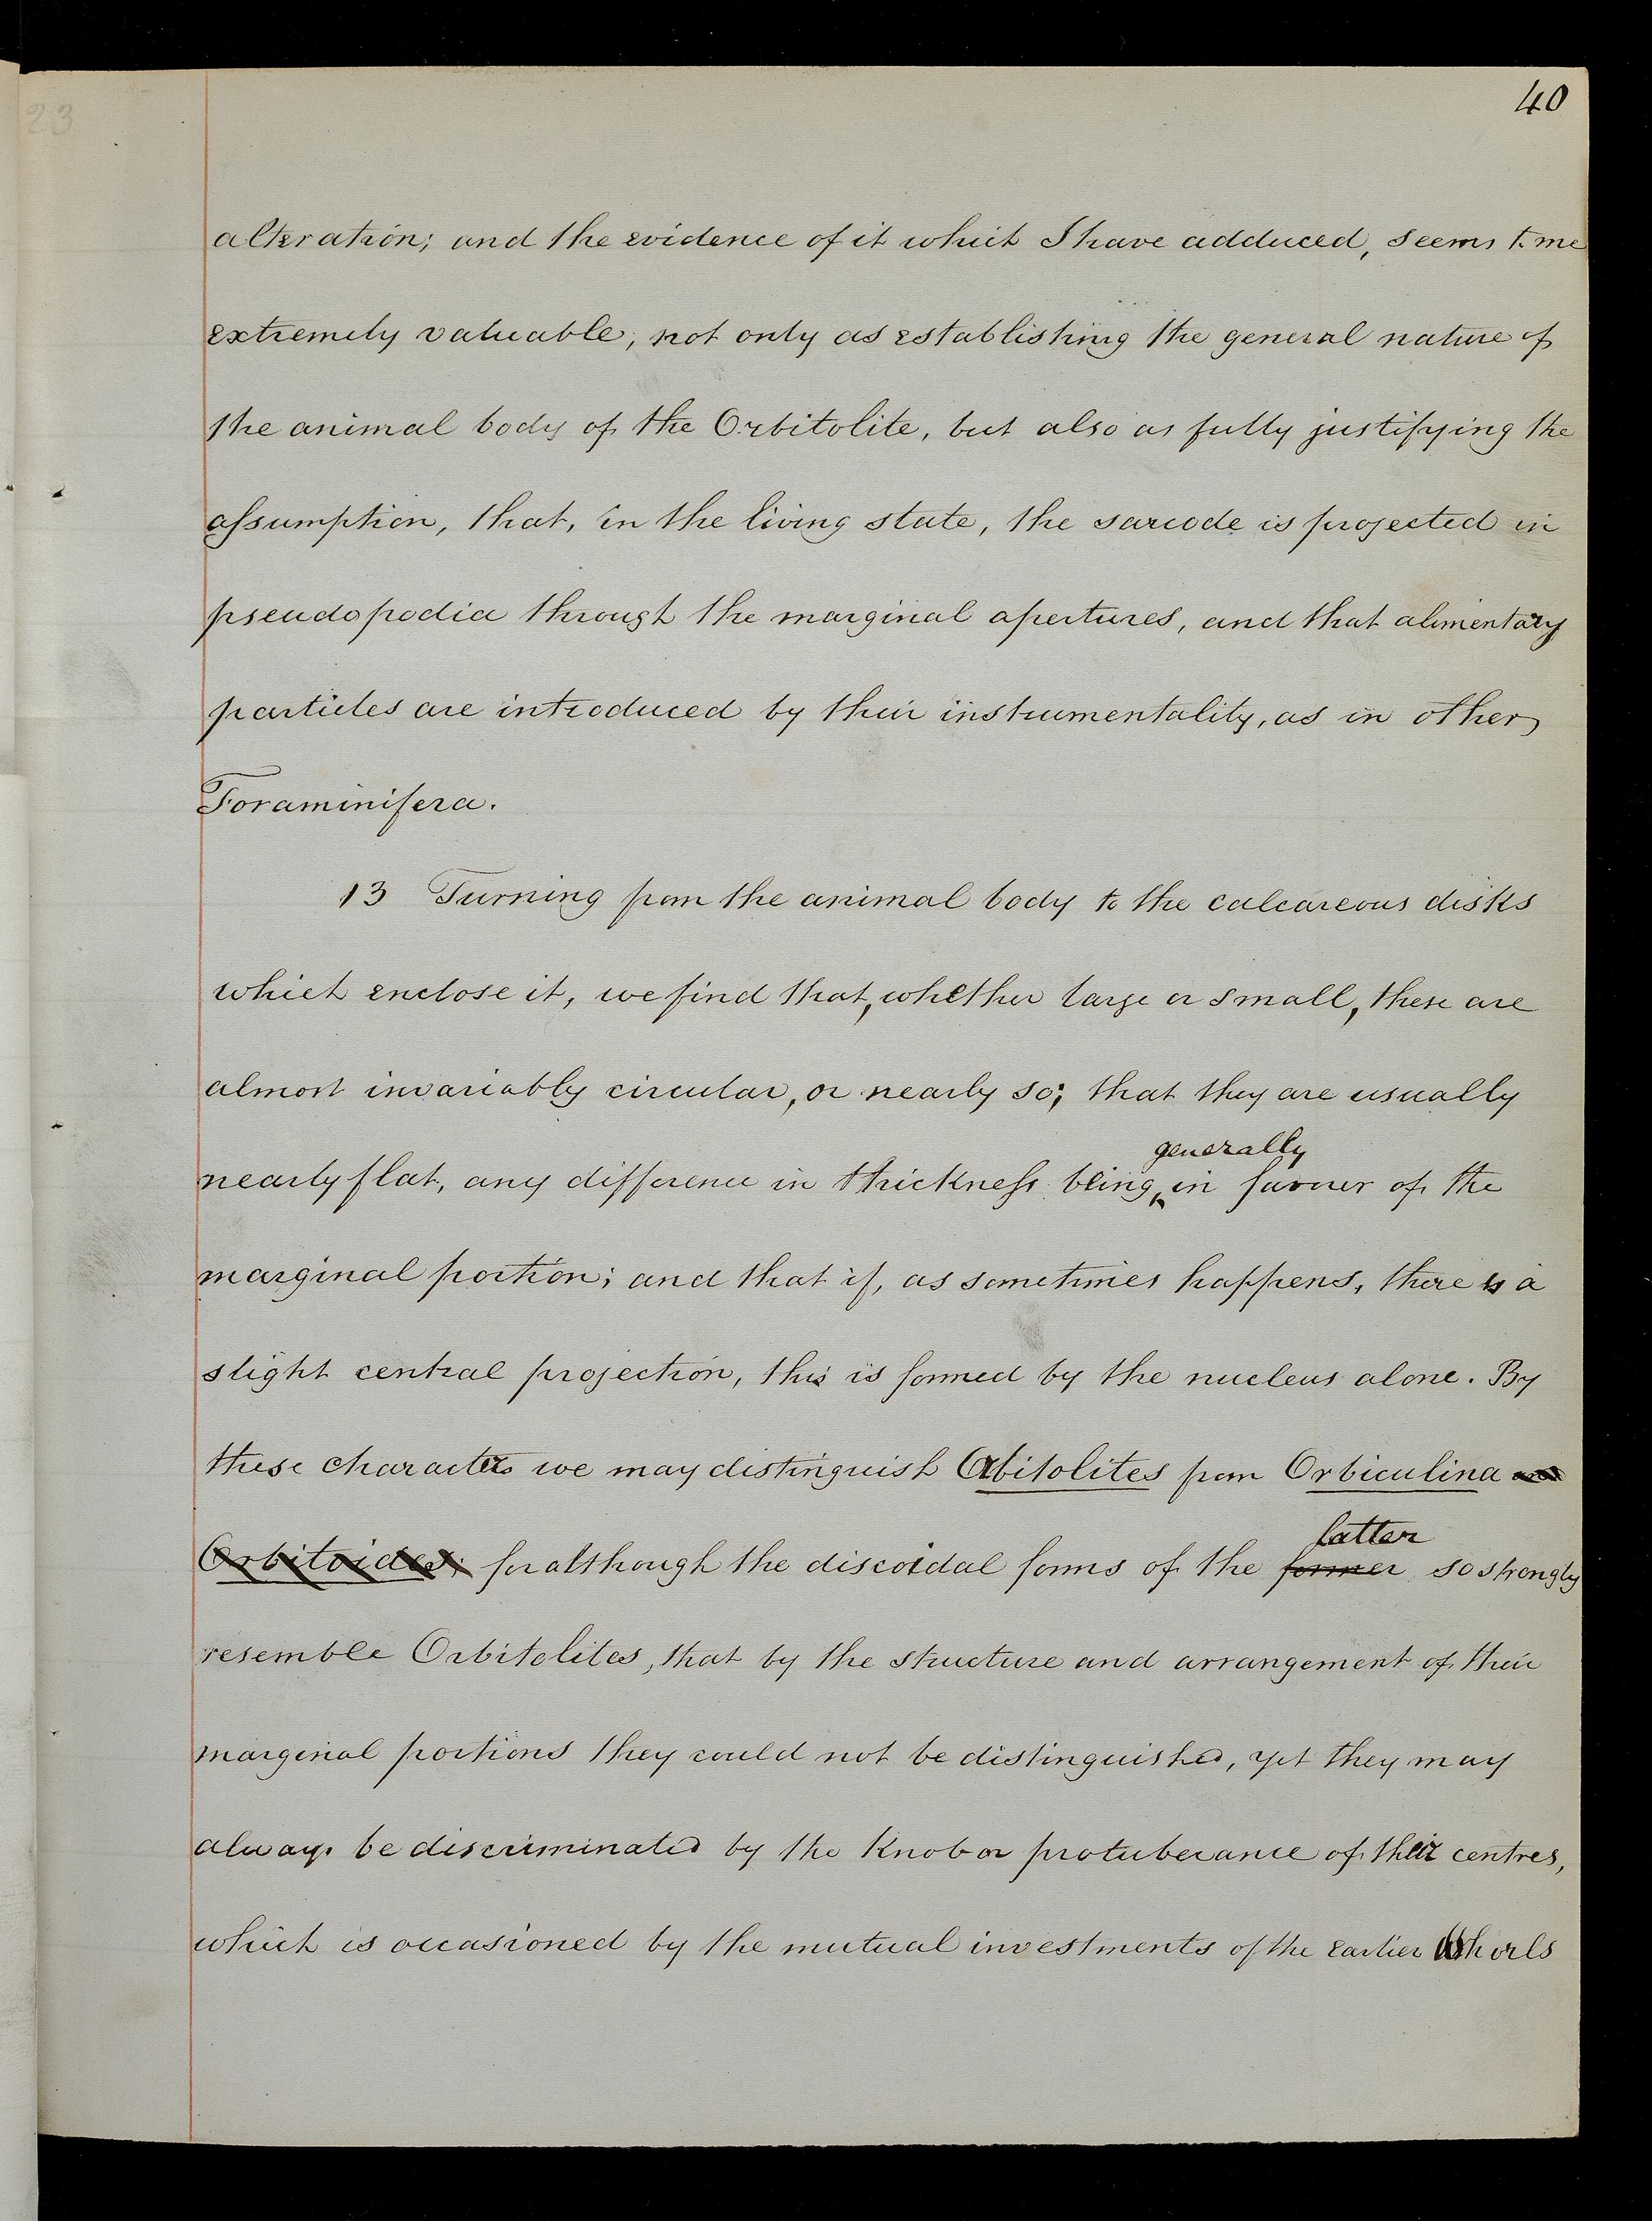 40
alteration; and the evidence of it which I have adduced, seems to me
extremely valuable, not only as establishing the general nature of
the animal body of the Orbitolite, but also as fully justifying the
assumption, that, in the living state, the sarcode is projected in
pseudopodia through the marginal apertures, and that alimentary
particles are introduced by their instrumentality, as in other
Foraminifera.
13 Turning from the animal body to the calcareous disks
which enclose it, we find that, whether large or small, these are
almost invariably circular, or nearly so; that they are usually
generally
nearly flat, any difference in thickness being in favour of the
marginal portion; and that if, as sometimes happens, there is a
slight central projection, this is formed by the nucleus alone. By
these characters we may distinguish Orbitolites from Orbiculina and
latter
Orbitoides; for although the discoidal forms of the former so strongly
resemble Orbitolites, that by the structure and arrangement of their
marginal portions they could not be distinguished, yet they may
always be discriminated by the Knob or protuberance of their centres,
which is occasioned by the mutual investments of the earlier whorls
23